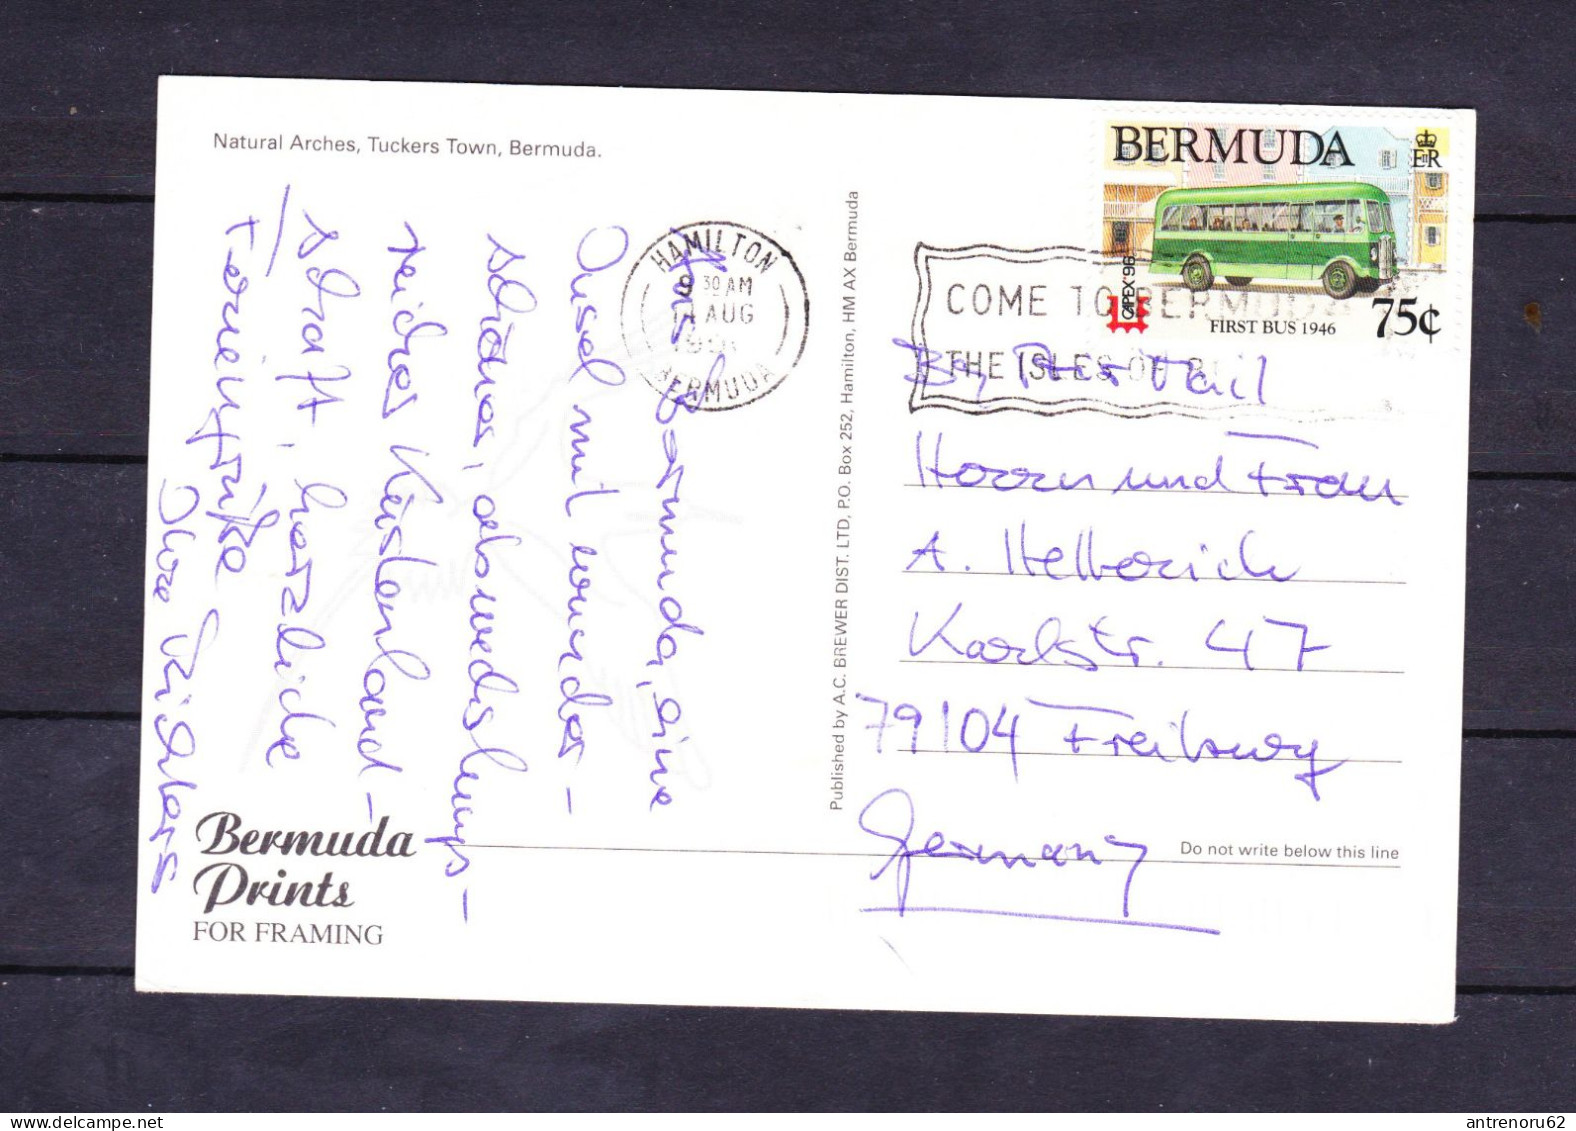 Natural Arches, Tuckers Town, Bermuda.
Aus Bermuda, eine
Insel mit wunder-
schöner, abwechslungs-
reicher Küstenland-
schaft, herzliche
Feriengrüße
Ihre Richters
HAMILTON
9 30 AM
AUG
BERMUDA
COME TO BERMUDA
THE ISLES OF
BERMUDA
E II R
CAPEX'96
FIRST BUS 1946
75¢
By Air Mail
Herrn und Frau
A. Helberich
Karlstr. 47
79104 Freiburg
Germany
Do not write below this line
Published by A.C. BREWER DIST. LTD, P.O. Box 252, Hamilton, HM AX Bermuda
Bermuda
Prints
FOR FRAMING
antrenoru62